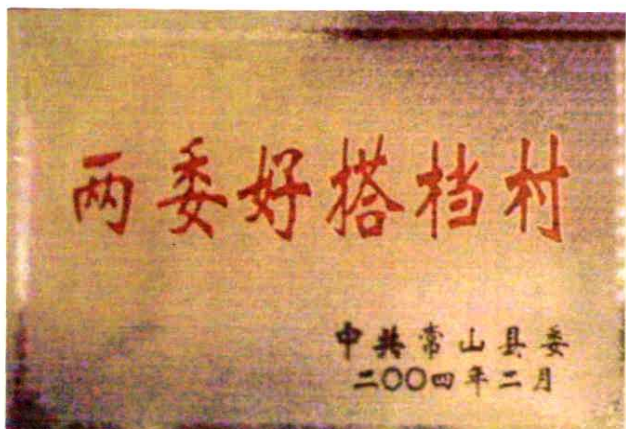 两委好搭档村
中共常山县委
二〇〇四年二月